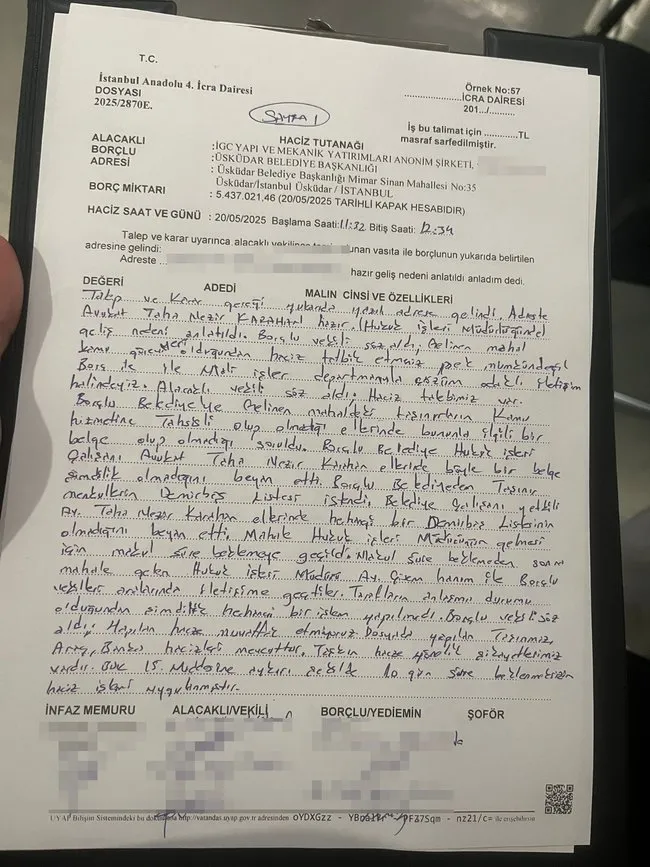 T.C.
İstanbul Anadolu 4. İcra Dairesi
DOSYASI
2025/2870E.
Örnek No:57
İCRA DAİRESİ
201.../.........
SAYFA 1
İş bu talimat için ............TL
masraf sarfedilmiştir.
HACİZ TUTANAĞI
ALACAKLI :İGC YAPI VE MEKANİK YATIRIMLARI ANONİM ŞİRKETİ,
BORÇLU :ÜSKÜDAR BELEDİYE BAŞKANLIĞI
ADRESİ : Üsküdar Belediye Başkanlığı Mimar Sinan Mahallesi No:35
Üsküdar/İstanbul Üsküdar / İSTANBUL
BORÇ MİKTARI : 5.437.021,46 (20/05/2025 TARİHLİ KAPAK HESABIDIR)
HACİZ SAAT VE GÜNÜ : 20/05/2025 Başlama Saati: Bitiş Saati: 12:34
Talep ve karar uyarınca alacaklı vekilince unan vasıta ile borçlunun yukarıda belirtilen
adresine gelindi:
Adreste hazır geliş nedeni anlatıldı anladım dedi.
DEĞERİ ADEDİ MALIN CİNSİ VE ÖZELLİKLERİ
Talep ve Karar gereği yukarıda yazılı adrese gelindi. Adreste
Avukat Taha Nezir KARAHAN hazır. (Hukuk işleri Müdürlüğünde)
geliş nedeni anlatıldı. Borçlu vekili söz aldı. Gelinen mahal
kamu olduğundan haciz tatbik etmeniz pek mümkün değil
Borç ile ile Mali işler departmanıyla çözüm odaklı iletişim
halindeyiz. Alacaklı vekili söz aldı. Haciz talebimiz var.
Borçlu Belediye'ye Gelinen mahaldeki taşınırların Kamu
hizmetine Tahsisli olup olmadığı ellerinde bununla ilgili bir
belge olup olmadığı soruldu. Borçlu Belediye Hukuk işleri
Çalışanı Avukat Taha Nezir Karahan ellerinde böyle bir belge
şimdilik olmadığını beyan etti. Borçlu Belediyeden Taşınır
menkullerin Demirbaş Listesi istendi. Belediye Çalışanı yetkili
Av. Taha Nezir Karahan ellerinde herhangi bir Demirbaş Listesinin
olmadığını beyan etti. Mahale Hukuk işleri Müdürünün gelmesi
için makul süre beklemeye geçildi. Makul süre beklemeden sonra
mahale gelen Hukuk işleri Müdürü Av. Çizem hanım ile Borçlu
vekilleri aralarında iletişime geçtiler. Tarafların anlaşma durumu
olduğundan şimdilik herhangi bir işlem yapılmadı. Borçlu vekili söz
aldı; Yapılan hacze muvafakat etmiyoruz Dosyada yapılan Taşınmaz,
Araç, Banka hacizleri mevcuttur. Taşkın hacze yönelik şikayetlerimiz
vardır. 15. Maddesine aykırı şekilde 10 gün süre beklenmeksizin
haciz işlemi uygulanmıştır.
İNFAZ MEMURU ALACAKLI/VEKİLİ BORÇLU/YEDİEMİN ŞOFÖR
UYAP Bilişim Sistemindeki bu http://vatandas.uyap.gov.tr adresinden oYDXGzz - - PF37Sqm - nz21/c= ile erişebilirsiniz